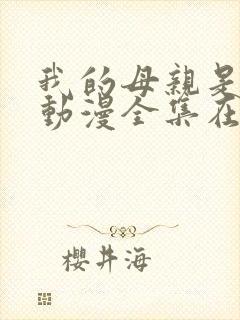 我的母親是
動漫全集在
櫻井海